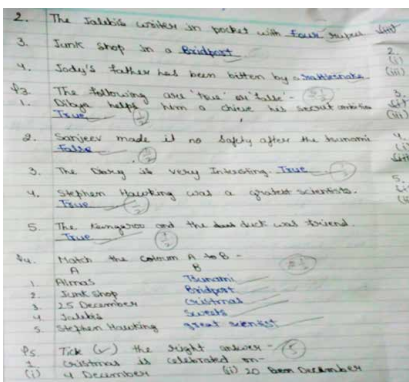 2. The Jalebis writer in pocket with four rupees
3. Junk Shop in a Bridport.
4. Jody's father had been bitten by a rattlesnake.
The following are 'True' or 'False' - 2½
1. Dibya helps him a chieve his secret
True ½
2. Sanjeev made it no Safty after the tsunami
False ½
3. The Dairy is very Interesting. True ½
4. Stephen Hawking was a greatest scientists.
True ½
5. The Kangaroo and the duck was friend.
True ½
Match the Colmn A to B - 2½
A B
1. Almas Tsunami
2. Junk Shop Bridport
3. 25 December Cristmas
4. Jalebis Sweets
5. Stephen Hawking great scientist
Tick (✓) the right answer - 5
1. Cristmas is celebrated on-
(i) 4 December (ii) 20